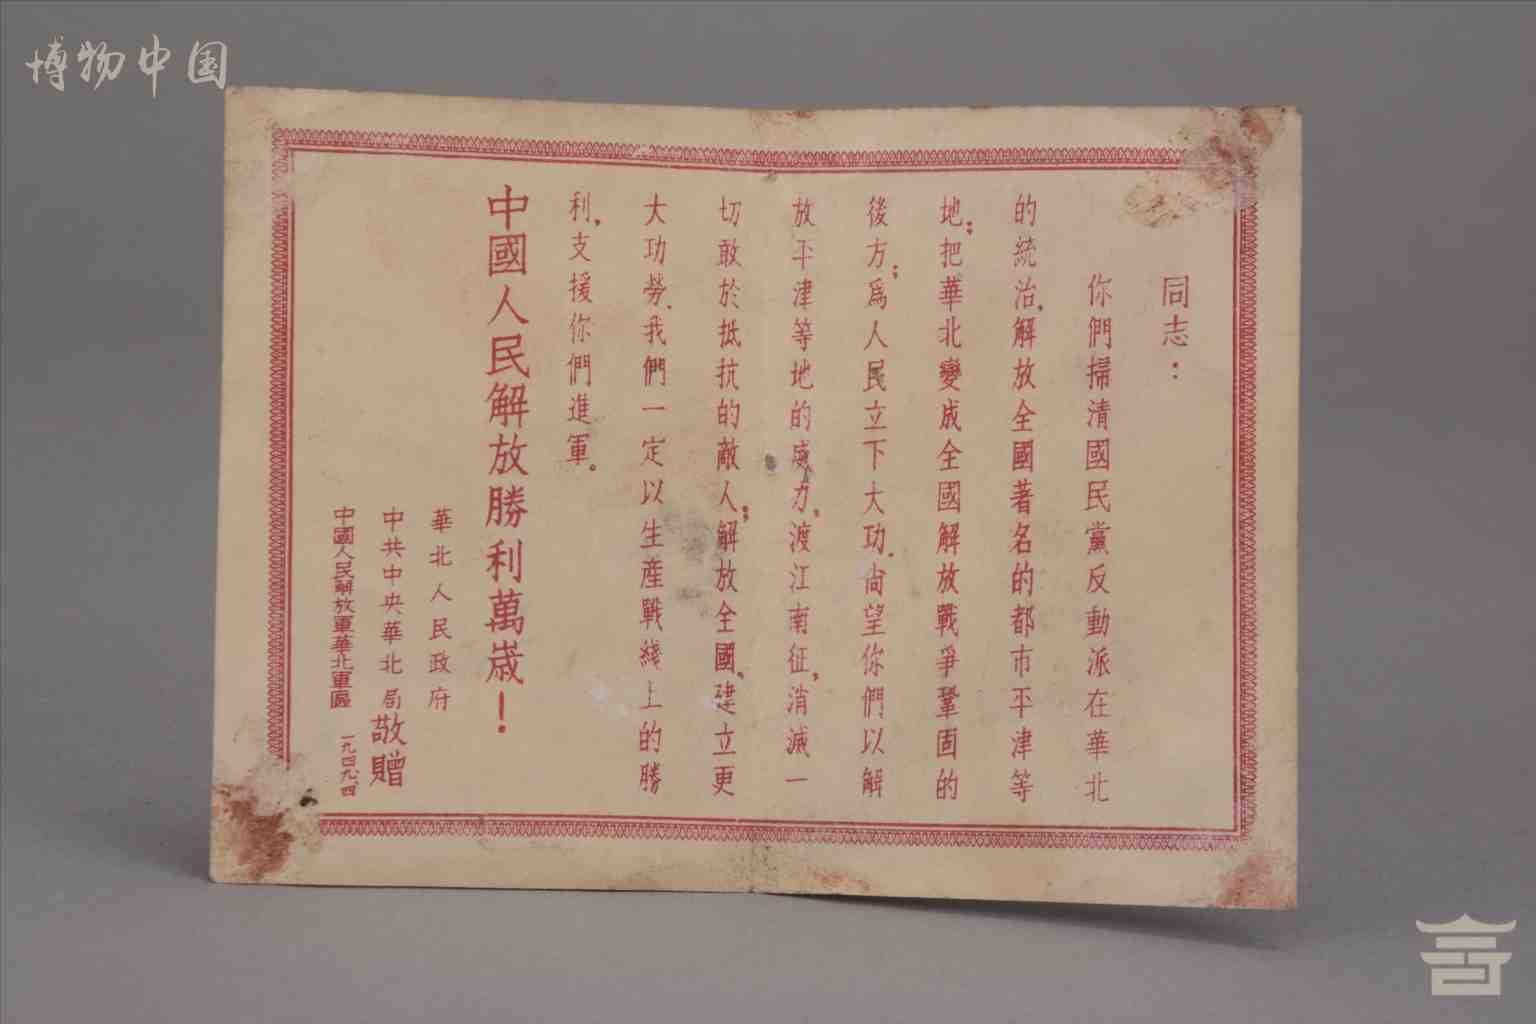 博物中国
同志：
你們掃清國民黨反動派在華北
的統治，解放全國著名的都市平津等
地；把華北變成全國解放戰爭鞏固的
後方；爲人民立下大功。尚望你們以解
放平津等地的威力，渡江南征，消滅一
切敢於抵抗的敵人；解放全國，建立更
大功勞。我們一定以生產戰綫上的勝
利，支援你們進軍。
中國人民解放勝利萬歲！
華北人民政府
中共中央華北局
中國人民解放軍華北軍區
敬贈
一九四九、四